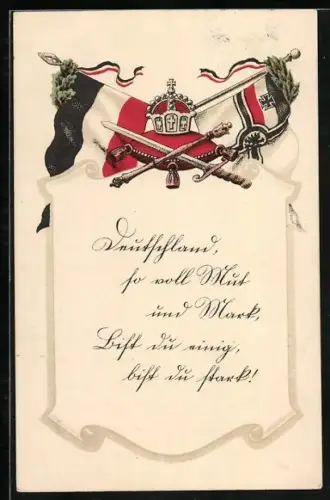 Deutschland,
so voll Mut
und Mark,
Bist du einig,
bist du stark!